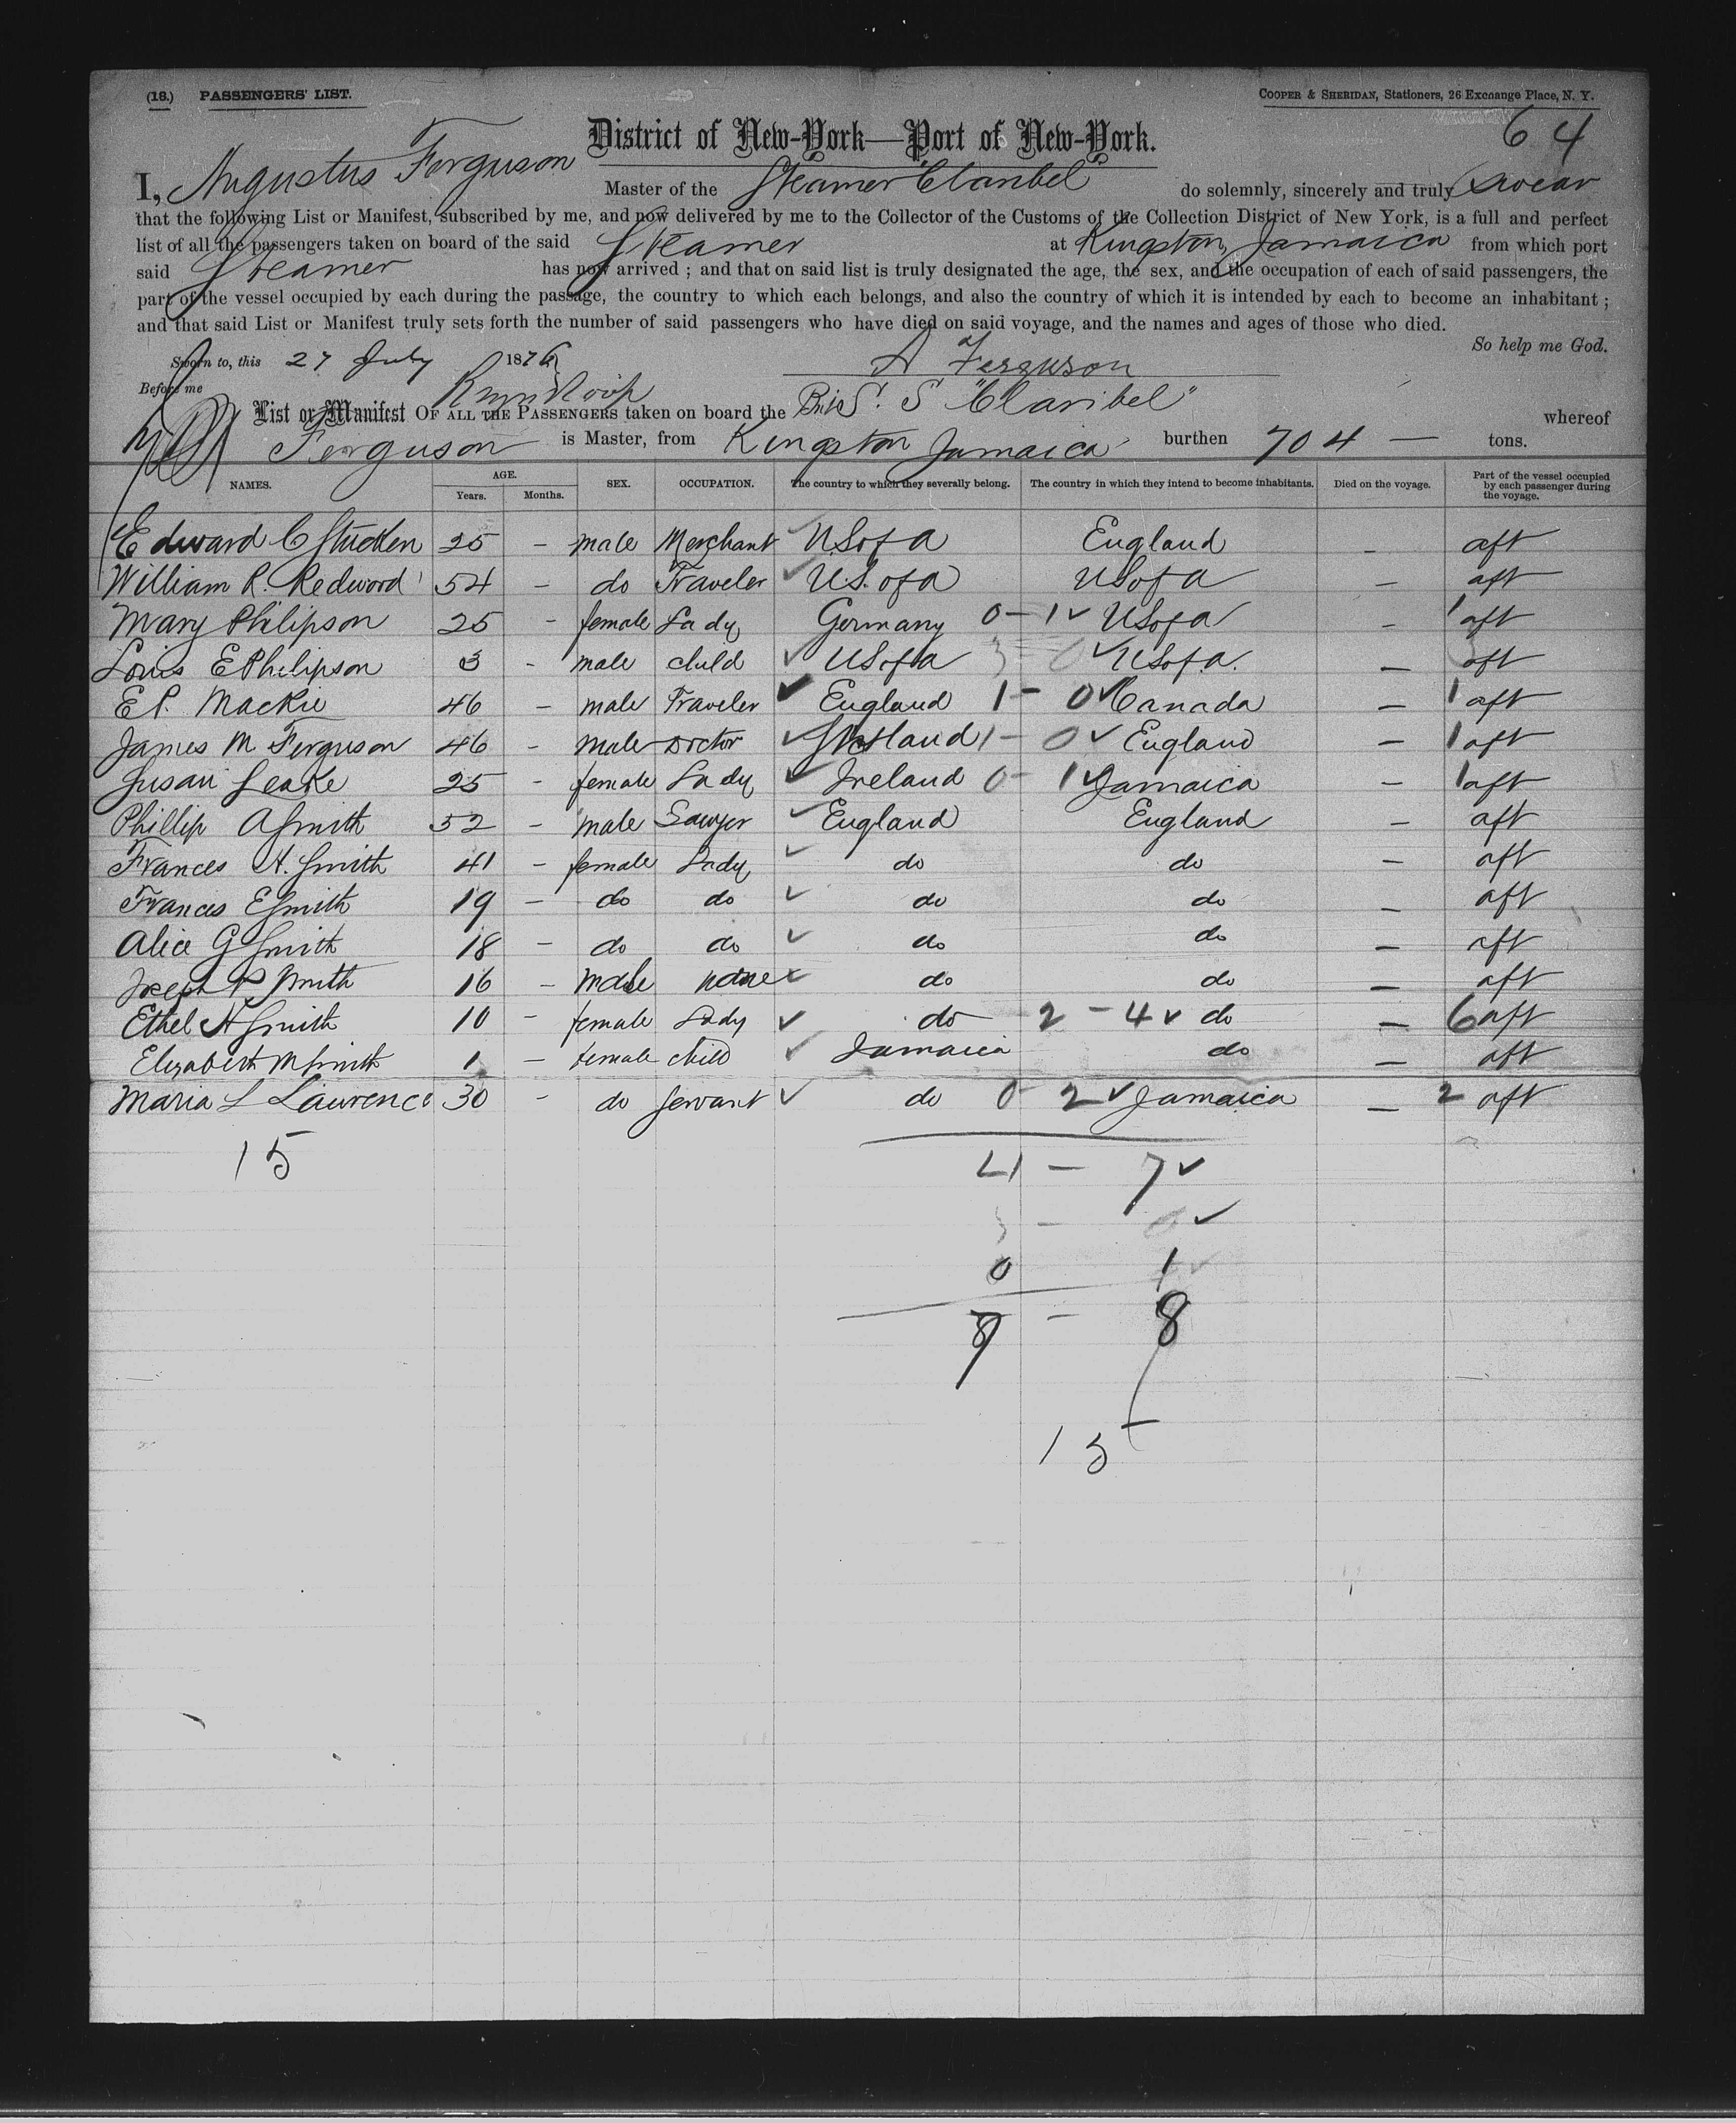 (18.) PASSENGERS' LIST. COOPER & SHERIDAN, Stationers, 26 Exchange Place, N. Y.
64
District of New-York—Port of New-York.
I, Augustus Ferguson Master of the Steamer Claribel do solemnly, sincerely and truly swear
that the following List or Manifest, subscribed by me, and now delivered by me to the Collector of the Customs of the Collection District of New York, is a full and perfect
list of all the passengers taken on board of the said Steamer at Kingston, Jamaica from which port
said Steamer has now arrived ; and that on said list is truly designated the age, the sex, and the occupation of each of said passengers, the
part of the vessel occupied by each during the passage, the country to which each belongs, and also the country of which it is intended by each to become an inhabitant ;
and that said List or Manifest truly sets forth the number of said passengers who have died on said voyage, and the names and ages of those who died.
So help me God.
Sworn to, this 27 July 1876 A Ferguson
Before me
List or Manifest OF ALL THE PASSENGERS taken on board the S. S "Claribel" whereof
Ferguson is Master, from Kingston Jamaica burthen 704 — tons.
NAMES. AGE. Years. Months. SEX. OCCUPATION. The country to which they severally belong. The country in which they intend to become inhabitants. Died on the voyage. Part of the vessel occupied by each passenger during the voyage.
Edward C Stucken 25 - male Merchant ✓ U.S of A England - aft
William R. Redword 54 - do Traveler ✓ U.S. of A U S of A - aft
Mary Philipson 25 - female Lady Germany 0 - 1 ✓ U S of A - 1 aft
Louis E Philipson 3 - male child ✓ U S of A 3 - 0 ✓ U S of A. - 3 aft
E P. Mackie 46 - male Traveler ✓ England 1 - 0 ✓ Canada - 1 aft
James M Ferguson 46 - male Doctor ✓ Scotland 1 - 0 ✓ England - 1 aft
Susan Leake 25 - female Lady ✓ Ireland 0 - 1 ✓ Jamaica - 1 aft
Phillip A Smith 52 - male Lawyer ✓ England England - aft
Frances H. Smith 41 - female Lady ✓ do do - aft
Frances E Smith 19 - do do ✓ do do - aft
Alice G Smith 18 - do do ✓ do do - aft
Joseph P Smith 16 - male none ✓ do do - aft
Ethel H Smith 10 - female Lady ✓ do 2 - 4 ✓ do - 6 aft
Elizabeth M Smith 1 - female child ✓ Jamaica do - aft
Maria L Lawrence 30 - do servant ✓ do 0 - 2 ✓ Jamaica - 2 aft
15
4 - 7 ✓
3 - 0 ✓
0 1 ✓
7 - 8
15